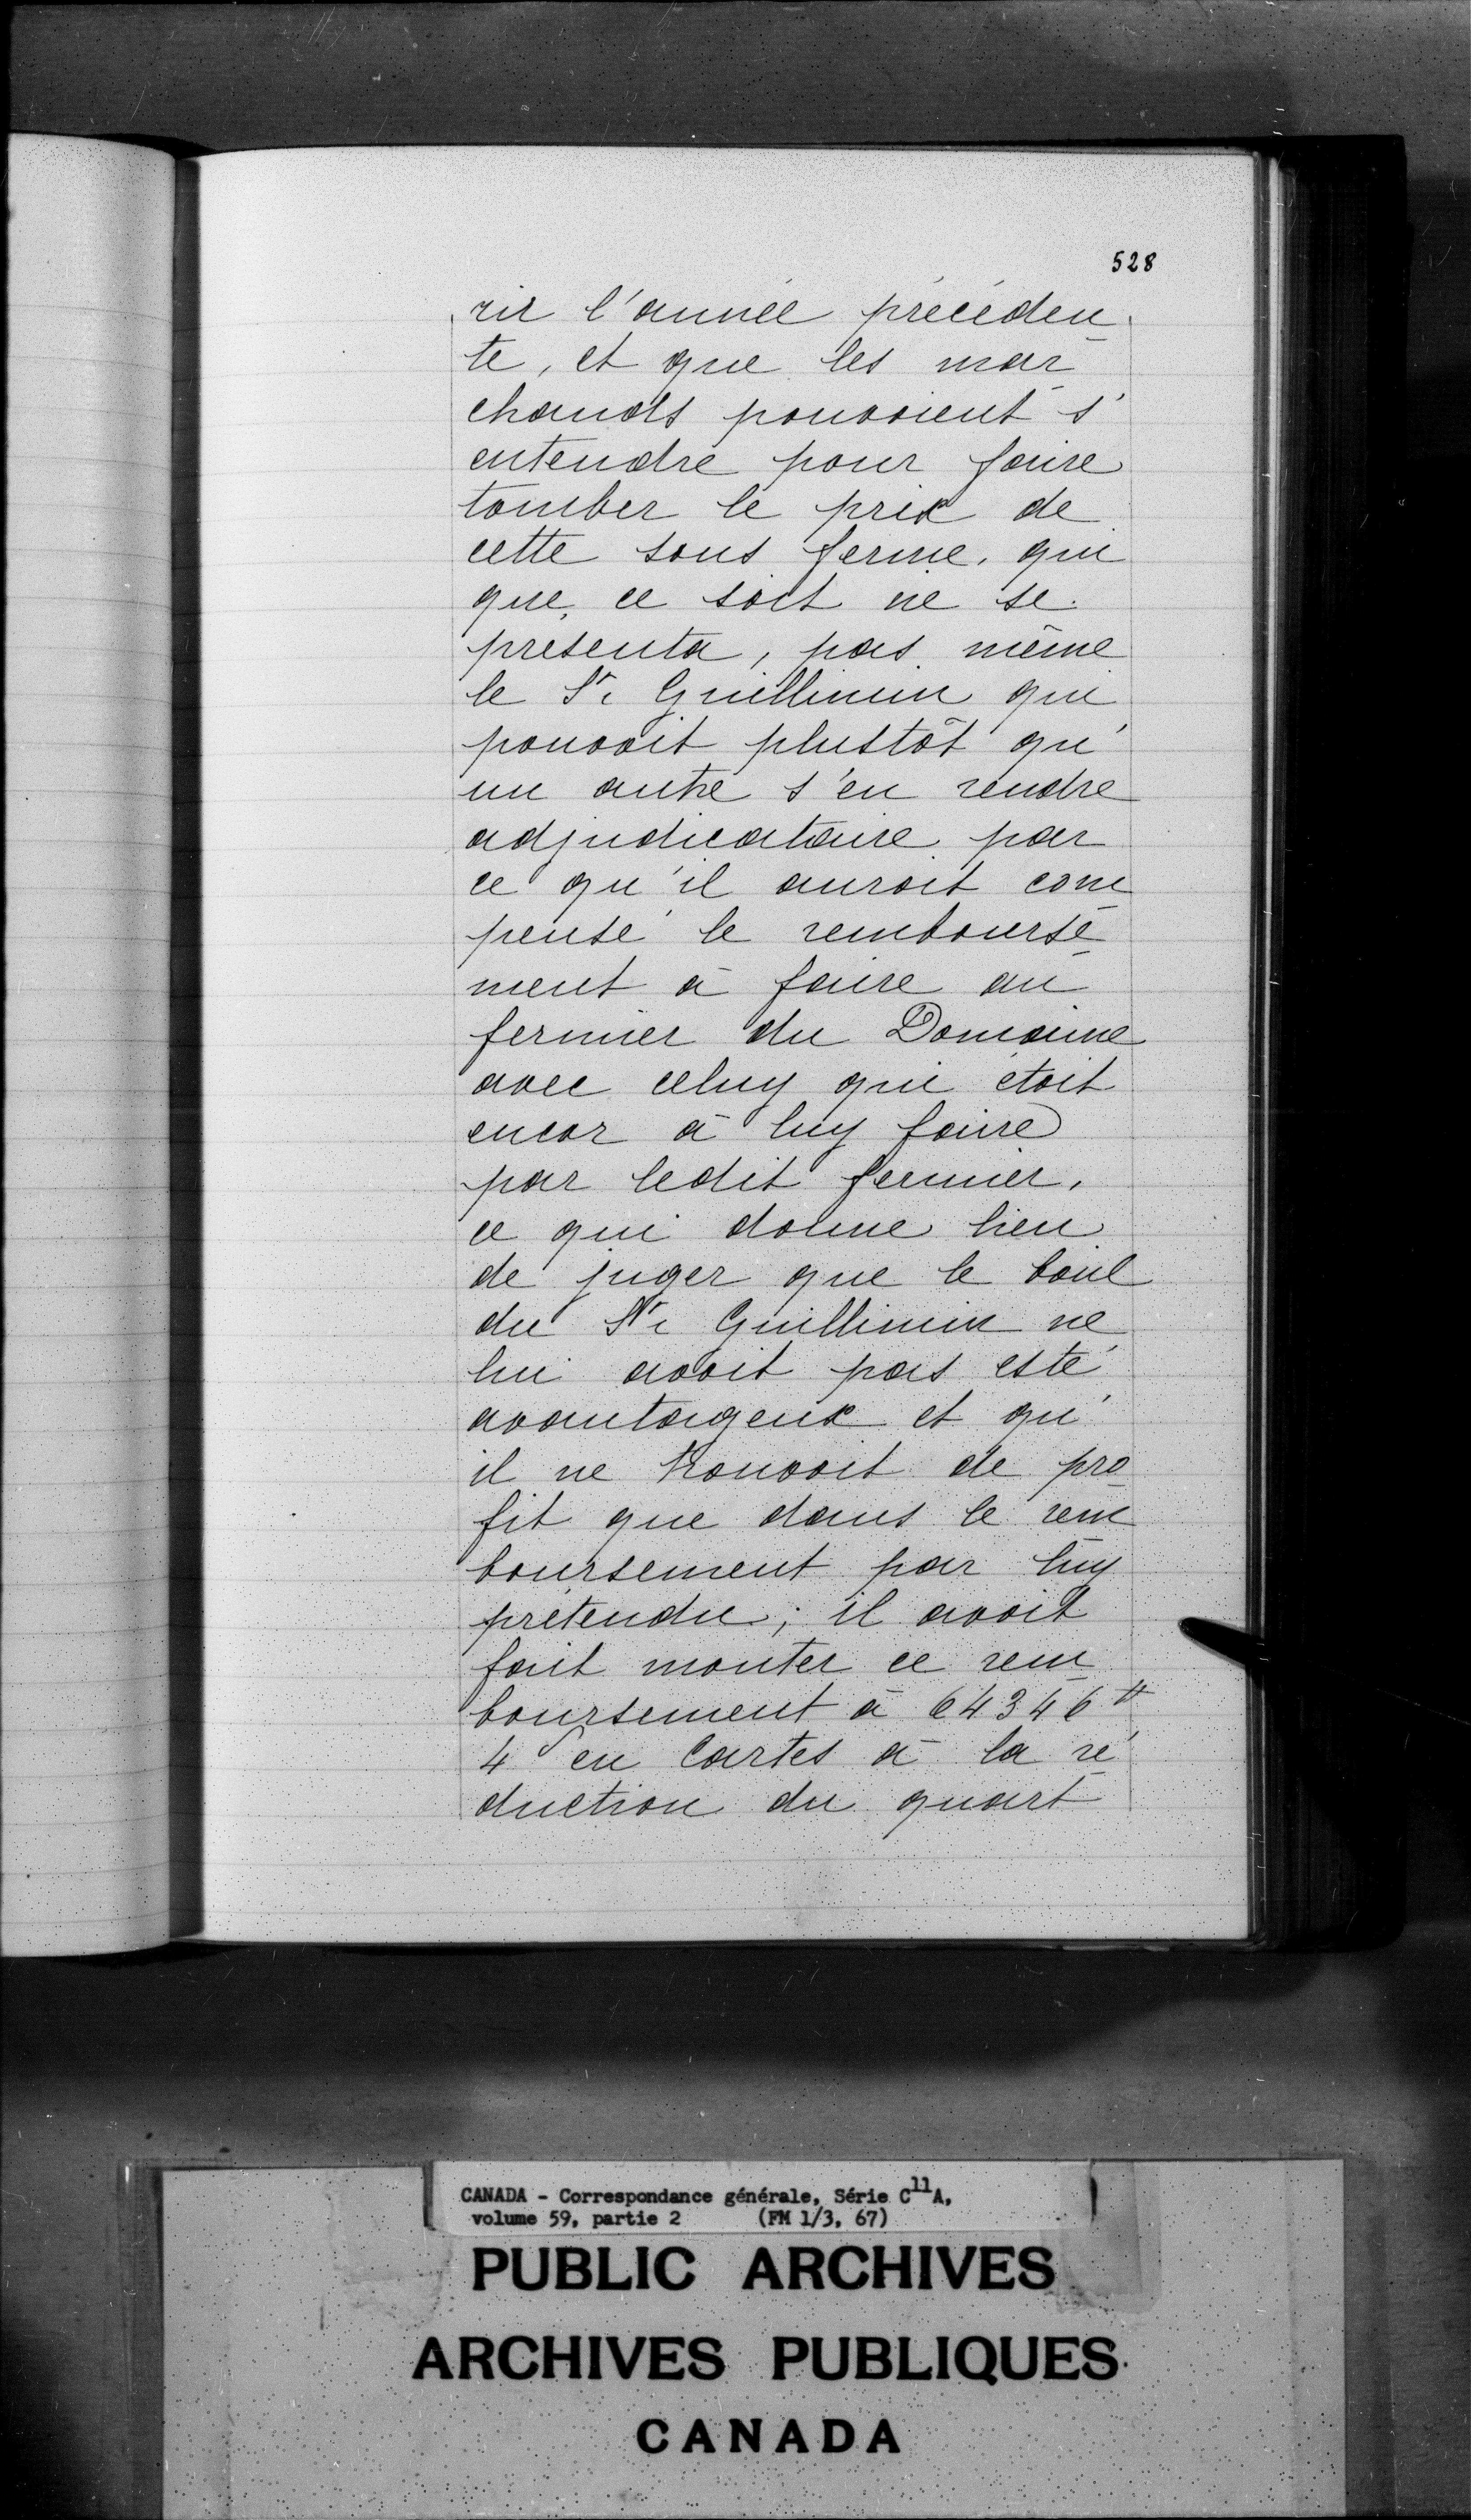 528
rir l'année précéden
te, et que les mar
chands pouvoient s'
entendre pour faire
tomber le prix de
cette sous ferme, qui
que ce soit ne se
presenta, pas même
le Sr. Guillimin qui
pouvoit plustôt qu'
un autre s'en rendre
adjudicataire par
ce qu'il auroit com
pensé le rembourse
ment à faire au
fermier du Domaine
avec celuy qui étoit
encor à luy faire
par ledit fermier,
ce qui donne lieu
de juger que le bail
du Sr. Guillimin ne
lui avoit pas esté
avantageux et qu'
il ne trouvoit de pro
fit que dans le rem
boursement par luy
prétendu; il avoit
fait monter ce rem
boursement à 64346 ₶
4 s en Cartes à la ré
duction du quart
CANADA - Correspondance générale, Série C11A,
volume 59, partie 2 (FM 1/3, 67)
PUBLIC ARCHIVES
ARCHIVES PUBLIQUES
CANADA